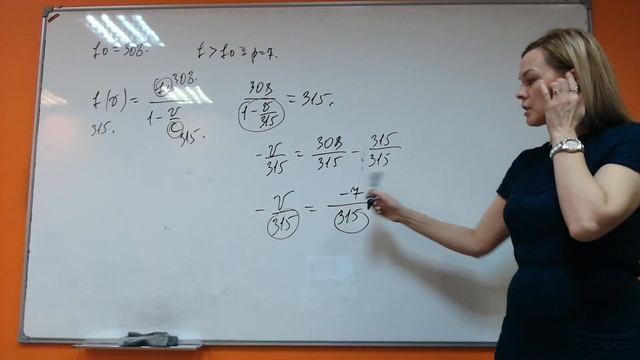 f0 = 308.
f > f0 ≥ p = 7.
f(v) = f0 308. / 1 - v/c 315.
315.
308 / 1 - v/315 = 315.
- v/315 = 308/315 - 315/315
- v/315 = -7/315